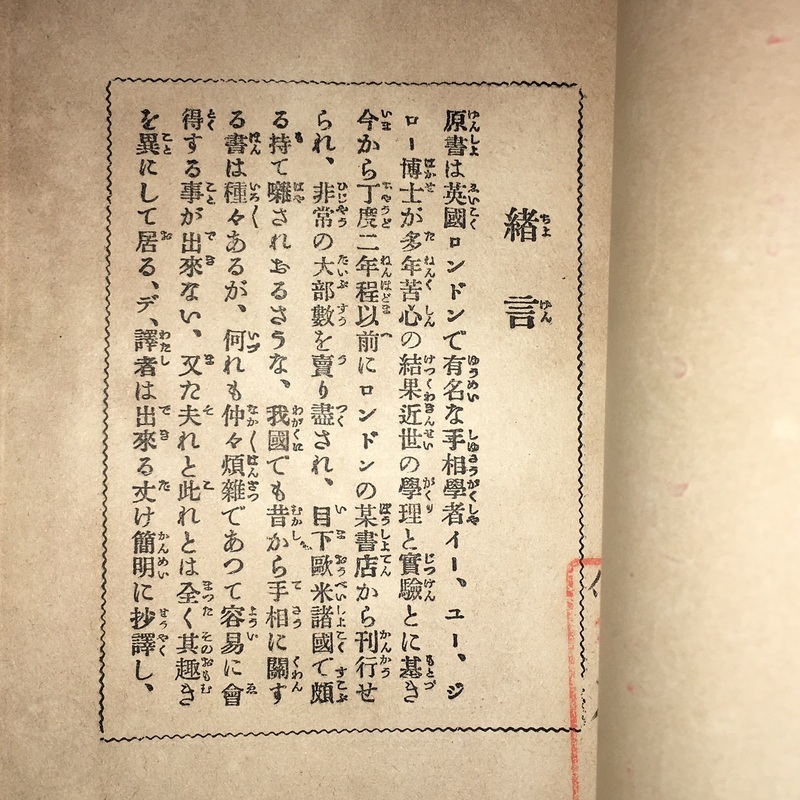 緒言
原書は英國ロンドンで有名な手相學者イー、ユー、ジ
ロー博士が多年苦心の結果近世の學理と實驗とに基き
今から丁度二年程以前にロンドンの某書店から刊行せ
られ、非常の大部數を賣り盡され、目下歐米諸國で頗
る持て囃されおるさうな、我國でも昔から手相に關す
る書は種々あるが、何れも仲々煩雜であつて容易に會
得する事が出來ない、又た夫れと此れとは全く其趣き
を異にして居る、デ、譯者は出來る丈け簡明に抄譯し、